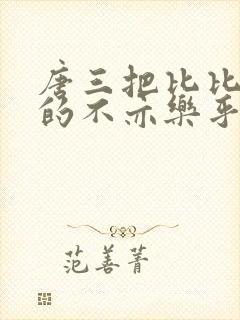 唐三把比比
的不亦樂乎
范善菁